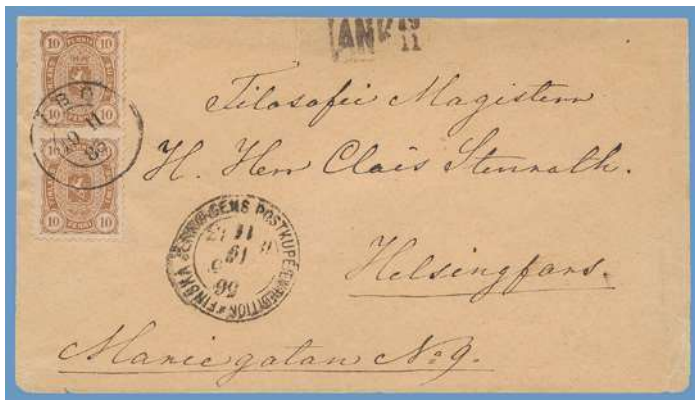 ANK 19
11
10 10
PENNI
10 10
10 10
10 10
PENNI
19 11
Filosofie Magistern
H. Herr Claës Stenroth.
FINSKA JERNVÄGENS POSTKUPÉEXPEDITION
11
19
Helsingfors.
Mariegatan No 9.